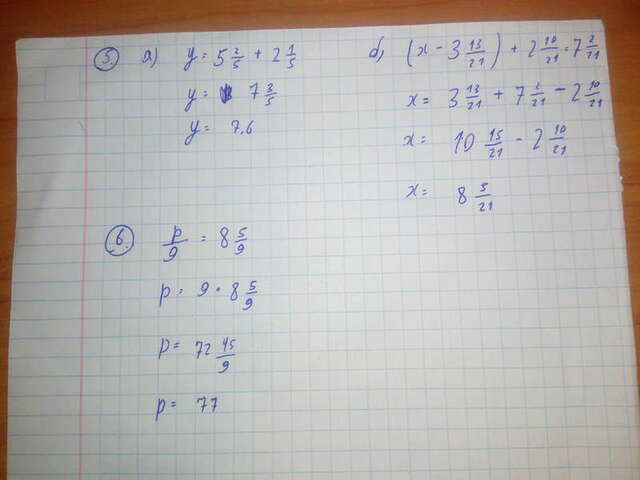 5. а) y = 5 2/5 + 2 1/5
y = 7 3/5
y = 7.6
б) (x - 3 13/21) + 2 10/21 = 7 2/21
x = 3 13/21 + 7 2/21 - 2 10/21
x = 10 15/21 - 2 10/21
x = 8 5/21
6. p/9 = 8 5/9
p = 9 · 8 5/9
p = 72 45/9
p = 77